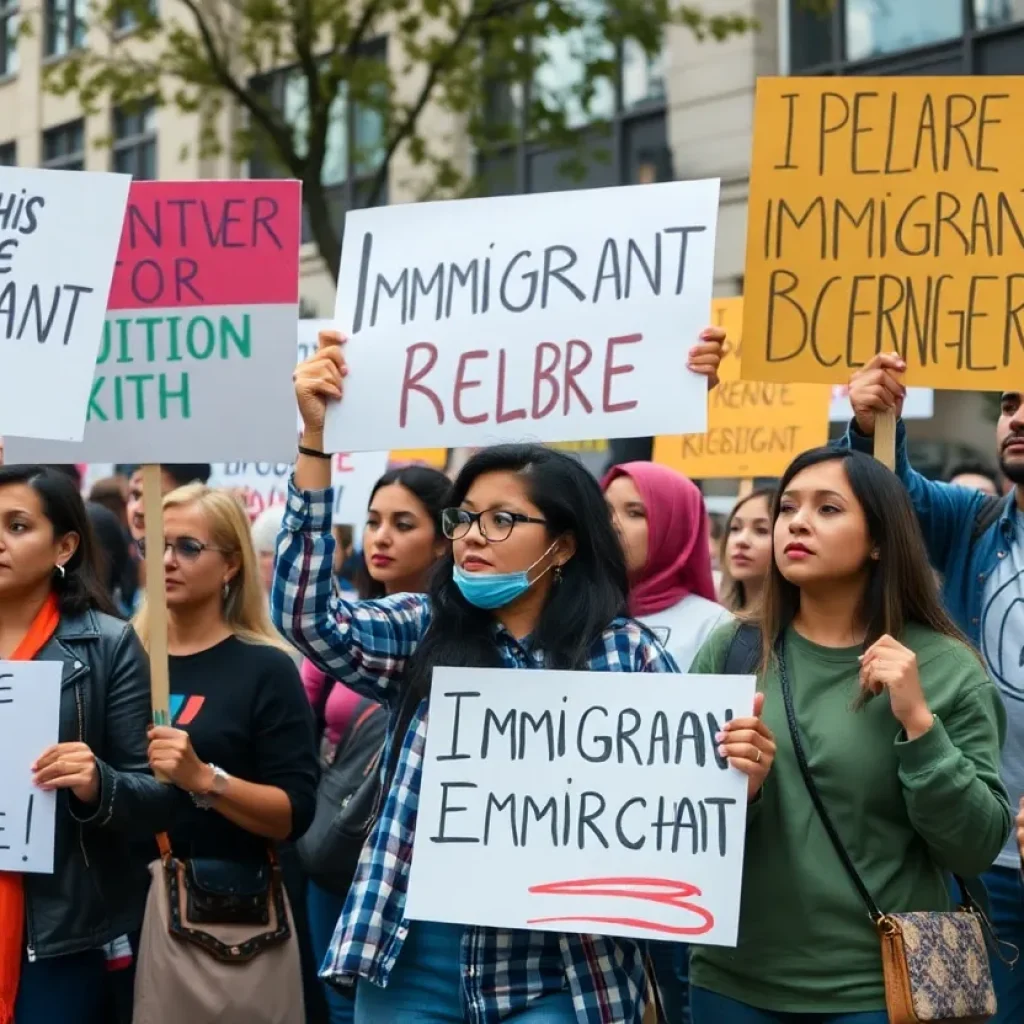 HIS
ANT
NTVER
FOR
UITION
KITH
IMMMIGRANT
RELBRE
I PELARE
IMMIGRAN
BCERNGER
IMMIGRAAN
EMMIRCHAT